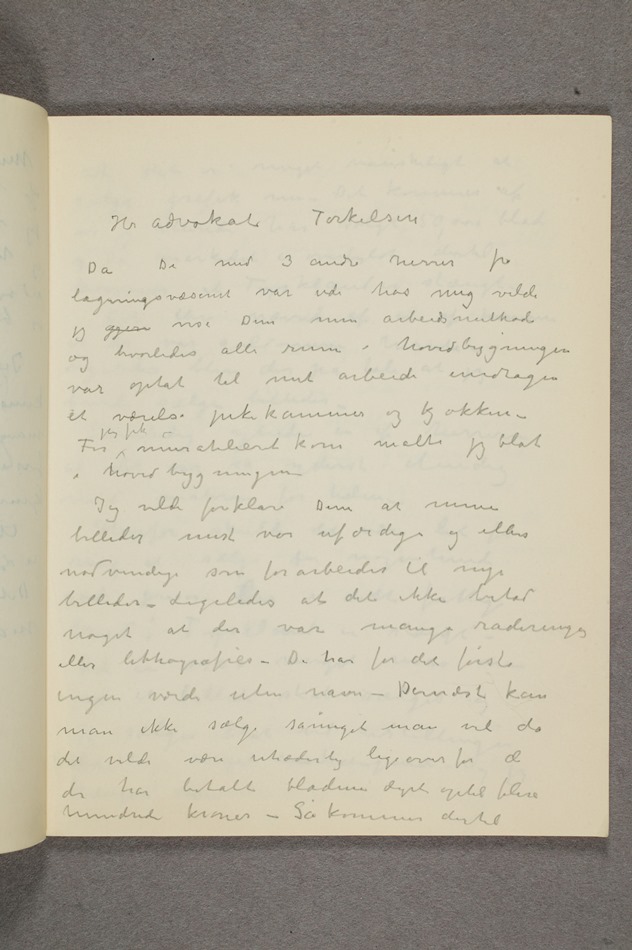 Hr advokat Torkelsen
Da De med 3 andre herrer fra
ligningsvæsenet var ude hos mig vilde
jeg vise Dem min arbeidsmethode
og hvorledes alle rum i hovedbygningen
var optat til mit arbeide undtagen
et værelse pikekammer og kjøkken –
Før jeg fik muratelieret kom malte jeg blot
i hovedbygningen
Jeg vilde forklare Dem at mine
billeder mest var ufærdige og ellers
nødvendige som forarbeider til nye
billeder – Ligeledes at det ikke betød
noget at der var mange raderinger
eller lithografier – De har for det første
ingen værdi uten navn – Dernæst kan
man ikke sælge så meget man vil da
det vilde være uhæderlig ligeoverfor
de har betalt bladene dyrt optil flere
hundrede kroner – Så kommer dertil